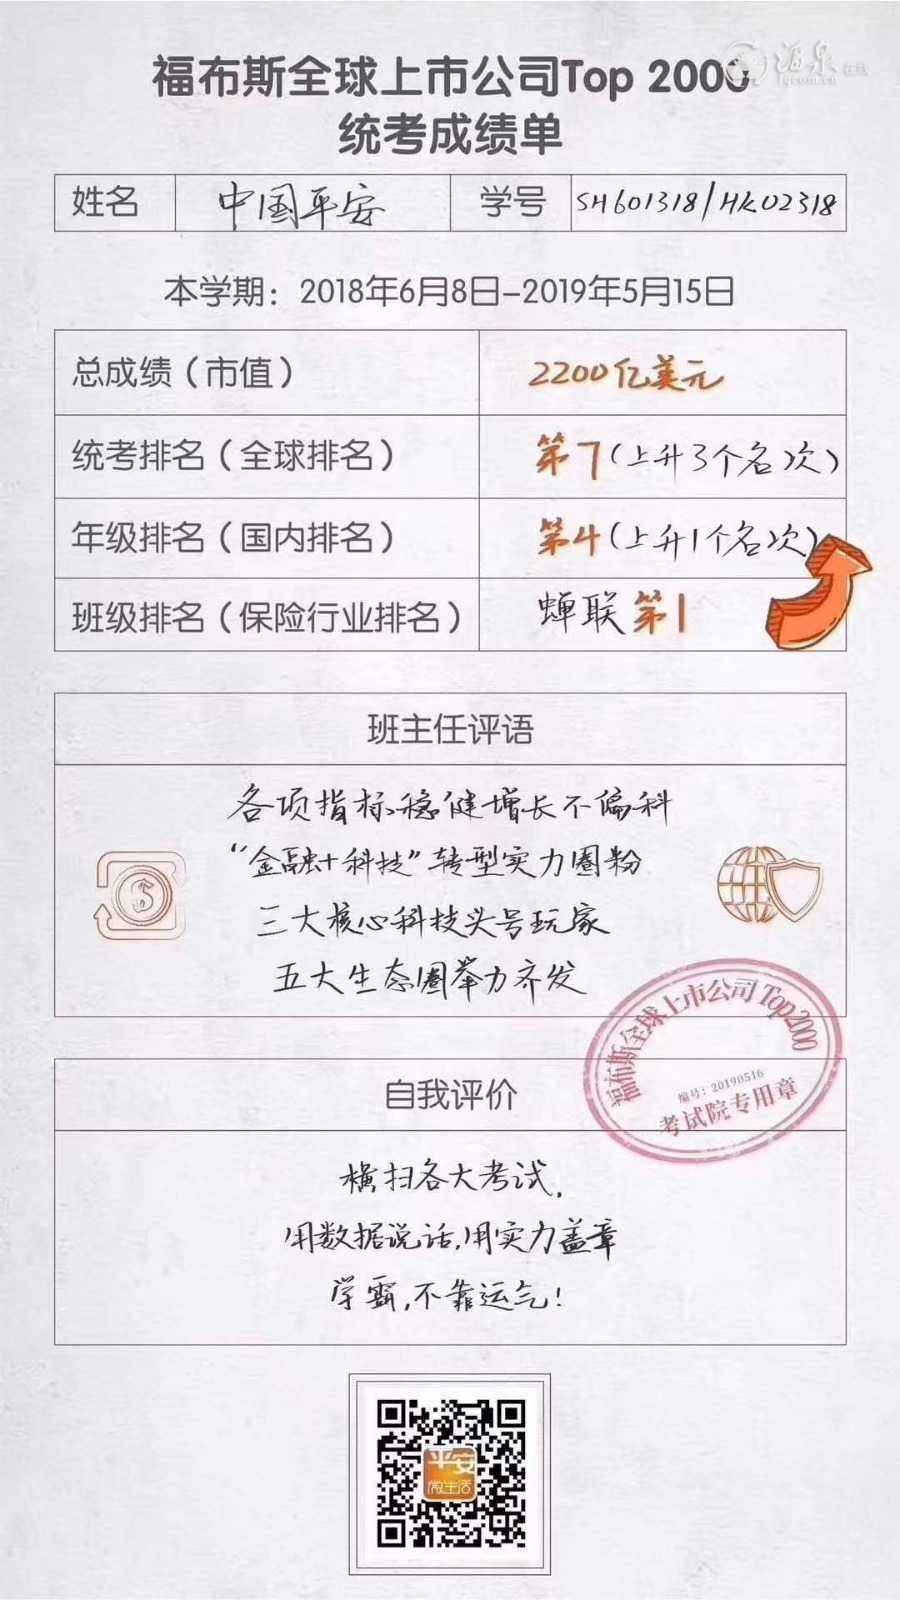 福布斯全球上市公司Top 2000
酒泉在线
jqcom.cn
统考成绩单
姓名 中国平安 学号 SH601318/HK02318
本学期：2018年6月8日-2019年5月15日
总成绩（市值） 2200亿美元
统考排名（全球排名） 第7（上升3个名次）
年级排名（国内排名） 第4（上升1个名次）
班级排名（保险行业排名） 蝉联第1
班主任评语
各项指标稳健增长不偏科
“金融+科技”转型实力圈粉
三大核心科技头号玩家
五大生态圈举力齐发
福布斯全球上市公司 Top2000
编号：20190516
考试院专用章
自我评价
横扫各大考试，
用数据说话，用实力盖章
学霸，不靠运气！
平安
微生活